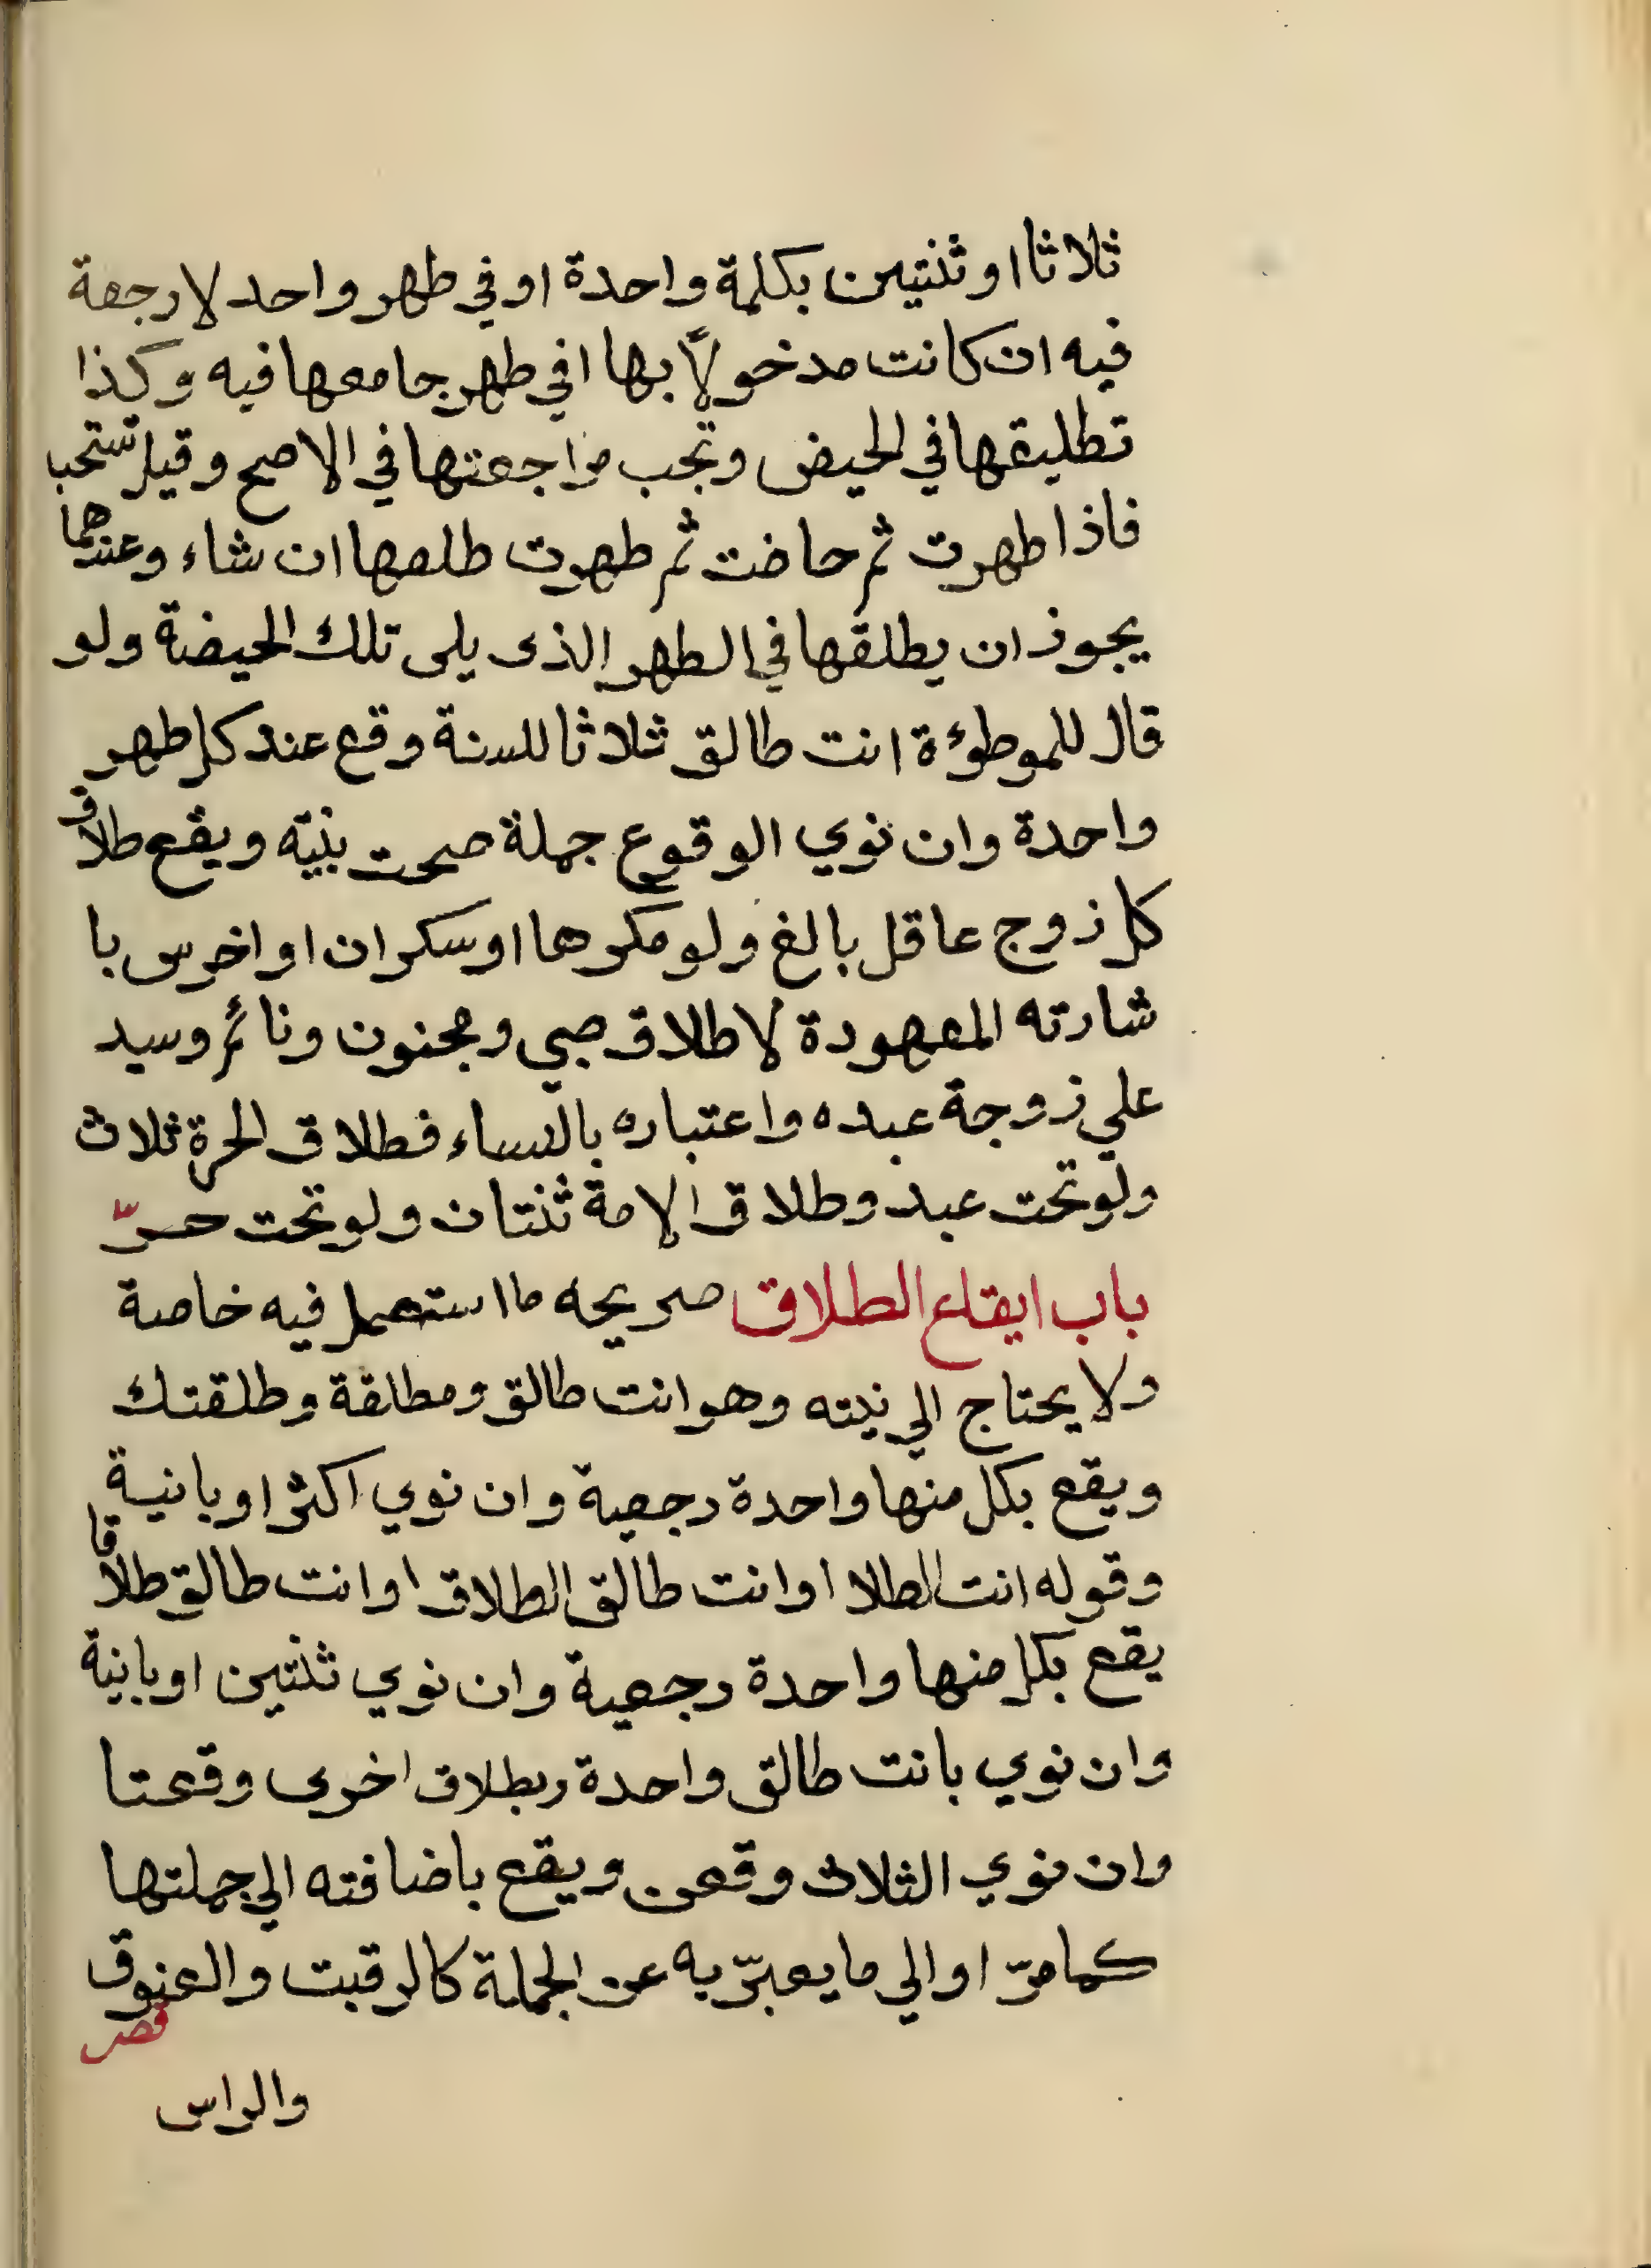 ثلاثا او ثنتين بكلمة واحدة او في طهر واحد لا رجعة
فيه ان كانت مدخولاً بها افي طهر جامعها فيه وكذا
تطليقها في الحيض وتجب مراجعتها في الاصح وقيل تستحب
فاذا طهرت ثم حاضت ثم طهرت طلعها ان شاء وعندهما
يجوز ان يطلقها في الطهر الذى يلى تلك الحيضة ولو
قال للموطوءة انت طالق ثلاثا للسنة وقع عند كل طهر
واحدة وان نوي الوقوع جملة صحت بنيته ويقع طلاق
كل زوج عاقل بالغ ولو مكرها او سكران او اخرس با
شارته المعهودة لا طلاق صبي ومجنون ونائم وسيد
علي زوجة عبده واعتباره بالنساء فطلاق الحرة ثلاث
ولو تحت عبد وطلاق الامة ثنتان ولو تحت حرّ
باب ايقاع الطلاق صريحه ما استعمل فيه خاصة
ولا يحتاج الي نيته وهو انت طالق ومطلقة وطلقتك
ويقع بكل منها واحدة رجعية وان نوي اكثر او بانية
وقوله انت الطلا او انت طالق الطلاق او انت طالق طلاقا
يقع بكل منها واحدة رجعية وان نوي ثنتين او بانية
وان نوي بانت طالق واحدة وبطلاق اخرى وقعتا
وان نوي الثلاث وقعن ويقع باضافته الي جملتها
كما مرّ او الي ما يعبرّ به عن الجملة كالرقبت والعنوق
والراس